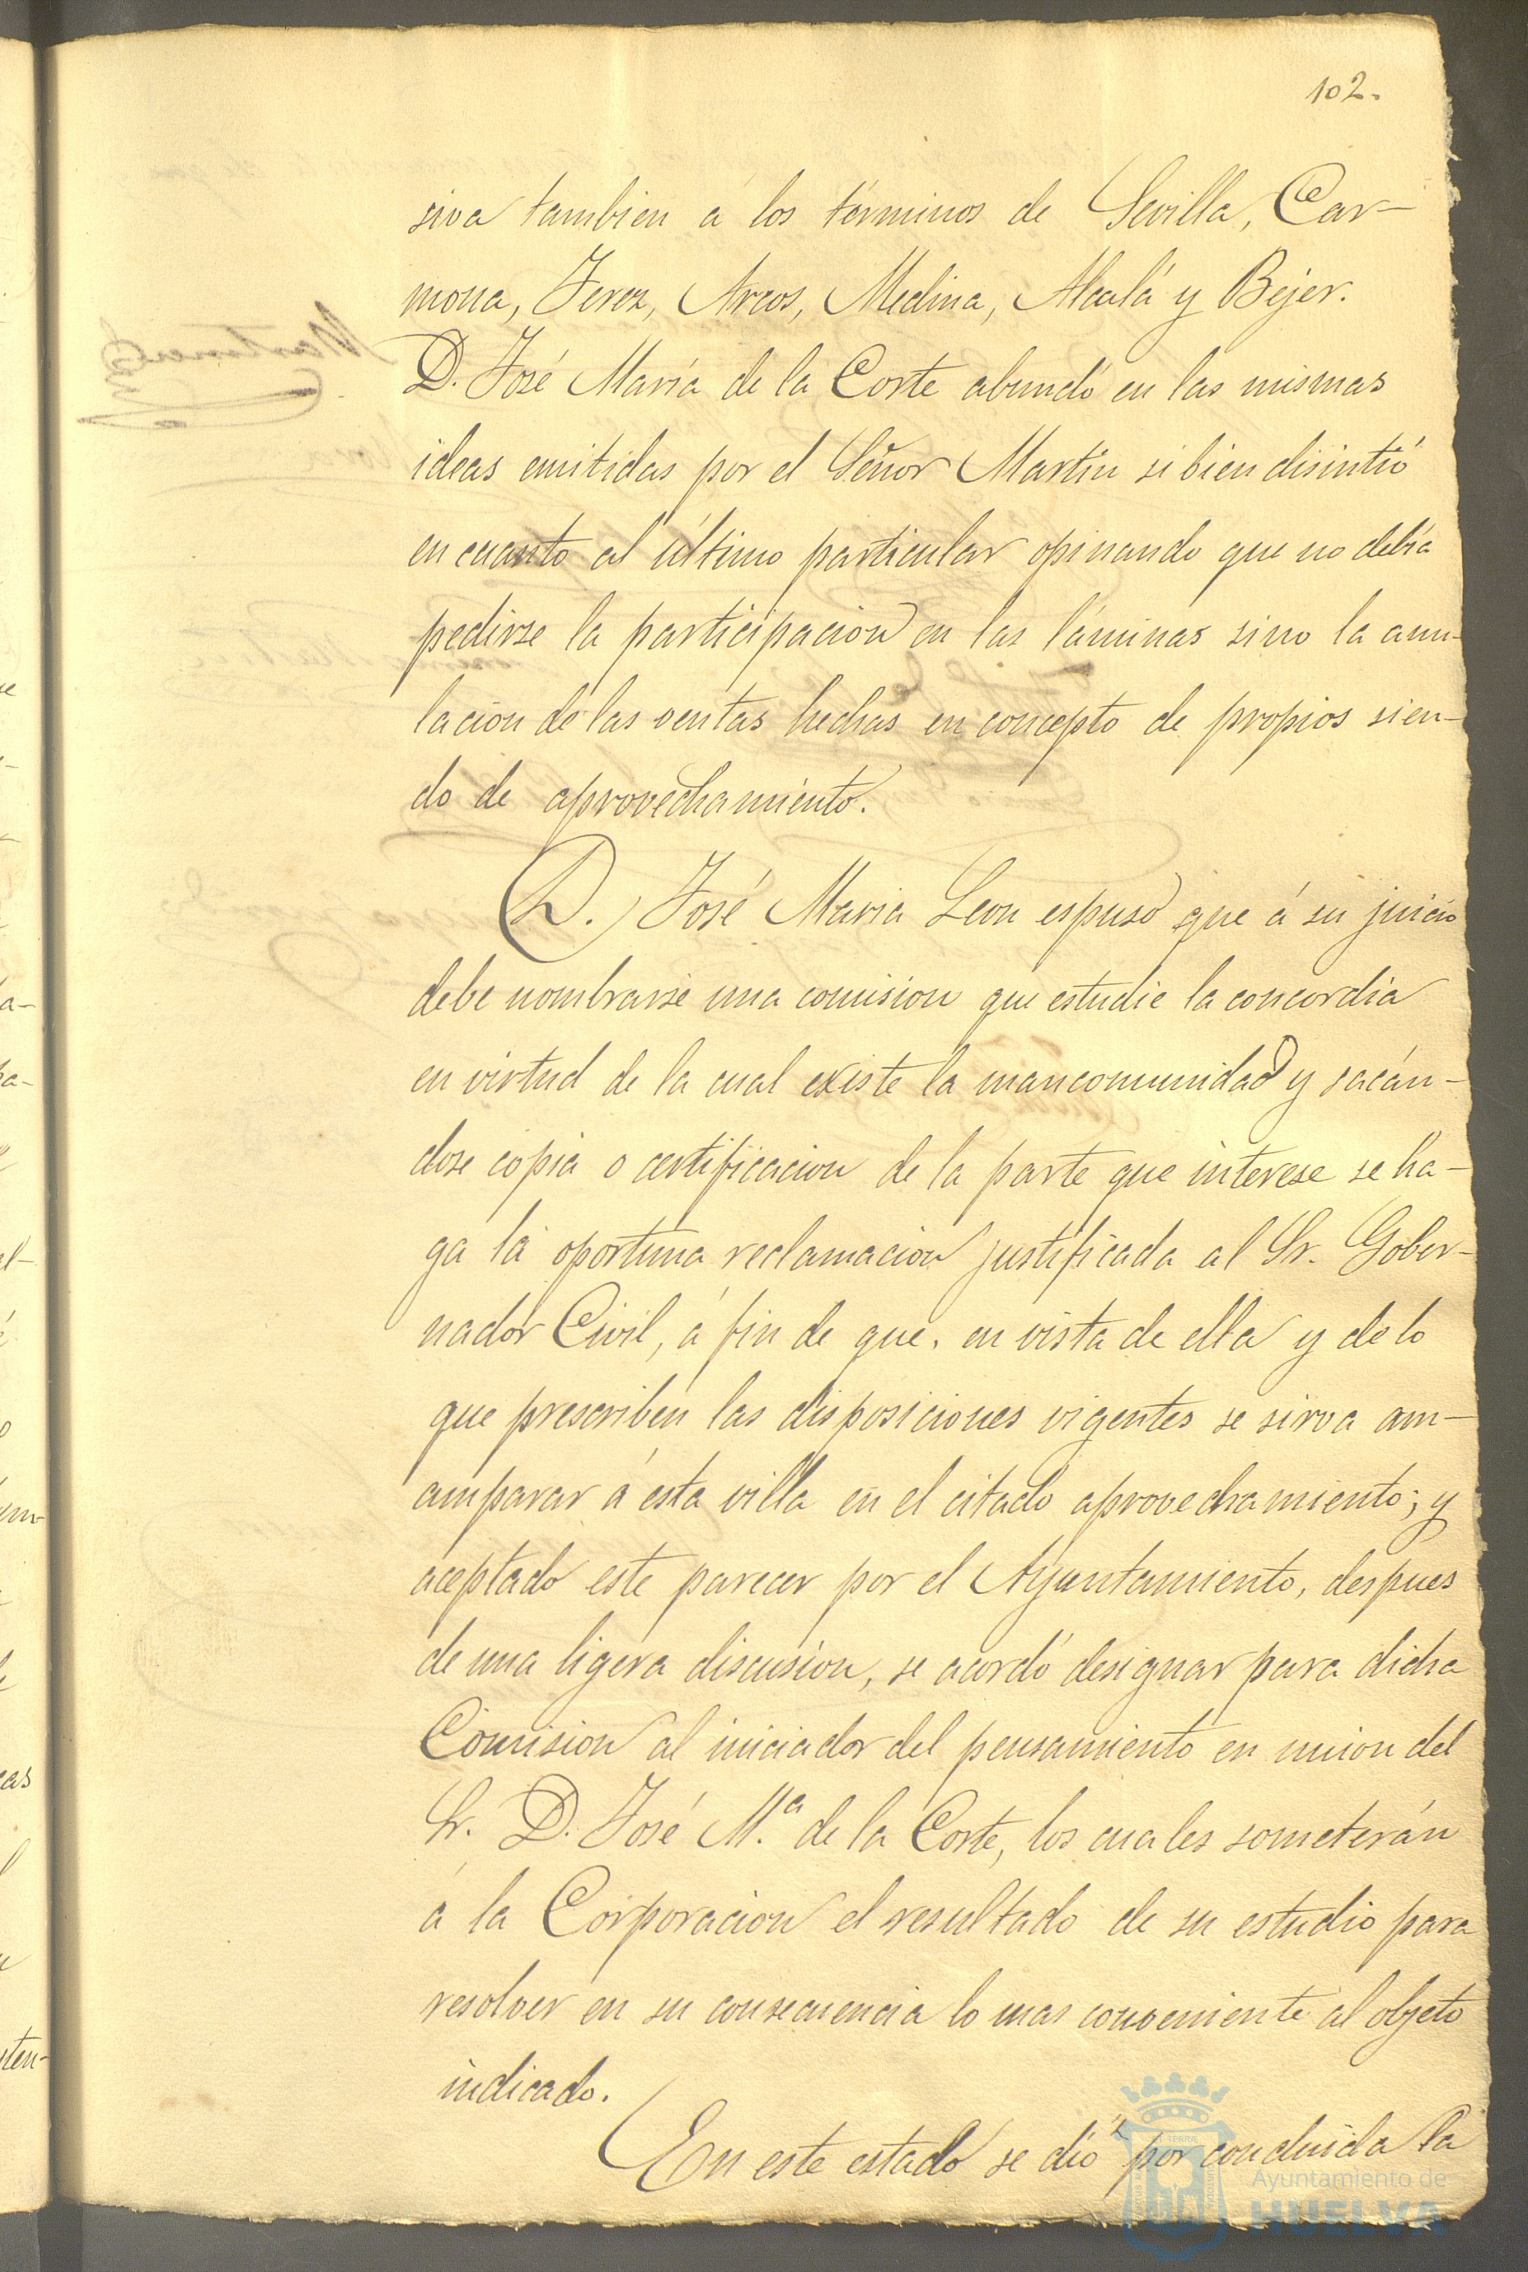 102.
siva tambien á los términos de Sevilla, Car-
mona, Jerez, Arcos, Medina, Alcalá y Béjer.
D. José María de la Corte abundó en las mismas
ideas emitidas por el Señor Martín si bien disintió
en cuanto al último particular opinando que no debia
pedirse la participacion en las láminas sino la anu-
lacion de las ventas hechas en concepto de propios sien-
do de aprovechamiento.
D. José Maria Leon espuso que á su juicio
debe nombrarse una comision que estudie la concordia
en virtud de la cual existe la mancomunidad y sacán-
dose copia o certificacion de la parte que interese se ha-
ga la oportuna reclamacion justificada al Sr. Gober-
nador Civil, á fin de que, en vista de ella y de lo
que prescriben las disposiciones vigentes se sirva am-
amparar á esta villa en el citado aprovechamiento; y
aceptado este parecer por el Ayuntamiento, despues
de una ligera discusion, se acordó designar para dicha
Comision al iniciador del pensamiento en union del
Sr. D. José M.ª de la Corte, los cuales someterán
á la Corporacion el resultado de su estudio para
resolver en su consecuencia lo mas conveniente al objeto
indicado.
En este estado se dió por concluida la
Ayuntamiento de
HUELVA